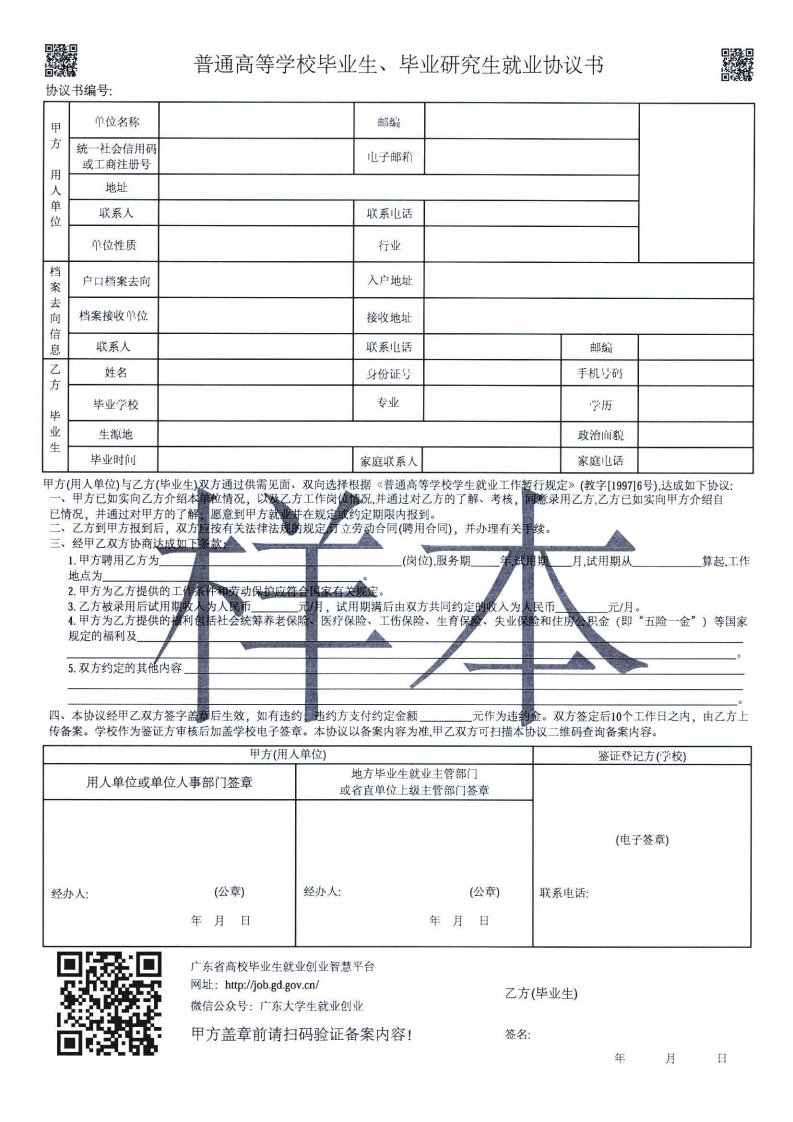 普通高等学校毕业生、毕业研究生就业协议书
协议书编号:
甲方 用人单位
单位名称 邮编
统一社会信用码或工商注册号 电子邮箱
地址
联系人 联系电话
单位性质 行业
档案去向信息
户口档案去向 入户地址
档案接收单位 接收地址
联系人 联系电话 邮编
乙方 毕业生
姓名 身份证号 手机号码
毕业学校 专业 学历
生源地 政治面貌
毕业时间 家庭联系人 家庭电话
甲方(用人单位)与乙方(毕业生)双方通过供需见面、双向选择根据《普通高等学校学生就业工作暂行规定》(教字[1997]6号),达成如下协议:
一、甲方已如实向乙方介绍本单位情况，以及乙方工作岗位情况,并通过对乙方的了解、考核，同意录用乙方,乙方已如实向甲方介绍自
己情况，并通过对甲方的了解，愿意到甲方就业并在规定或约定期限内报到。
二、乙方到甲方报到后，双方应按有关法律法规的规定订立劳动合同(聘用合同)，并办理有关手续。
三、经甲乙双方协商达成如下条款:
1.甲方聘用乙方为____(岗位),服务期____年,试用期____月,试用期从____算起,工作
地点为____。
2.甲方为乙方提供的工作条件和劳动保护应符合国家有关规定。
3.乙方被录用后试用期收入为人民币____元/月，试用期满后由双方共同约定的收入为人民币____元/月。
4.甲方为乙方提供的福利包括社会统筹养老保险、医疗保险、工伤保险、生育保险、失业保险和住房公积金（即“五险一金”）等国家
规定的福利及____
____。
5.双方约定的其他内容____
____
____。
四、本协议经甲乙双方签字盖章后生效，如有违约，违约方支付约定金额____元作为违约金。双方签定后10个工作日之内，由乙方上
传备案。学校作为鉴证方审核后加盖学校电子签章。本协议以备案内容为准,甲乙双方可扫描本协议二维码查询备案内容。
样本
甲方(用人单位) 鉴证登记方(学校)
用人单位或单位人事部门签章
地方毕业生就业主管部门
或省直单位上级主管部门签章
(电子签章)
经办人: (公章) 经办人: (公章) 联系电话:
年 月 日 年 月 日
广东省高校毕业生就业创业智慧平台
网址：http://job.gd.gov.cn/
微信公众号：广东大学生就业创业
甲方盖章前请扫码验证备案内容!
乙方(毕业生)
签名:
年 月 日